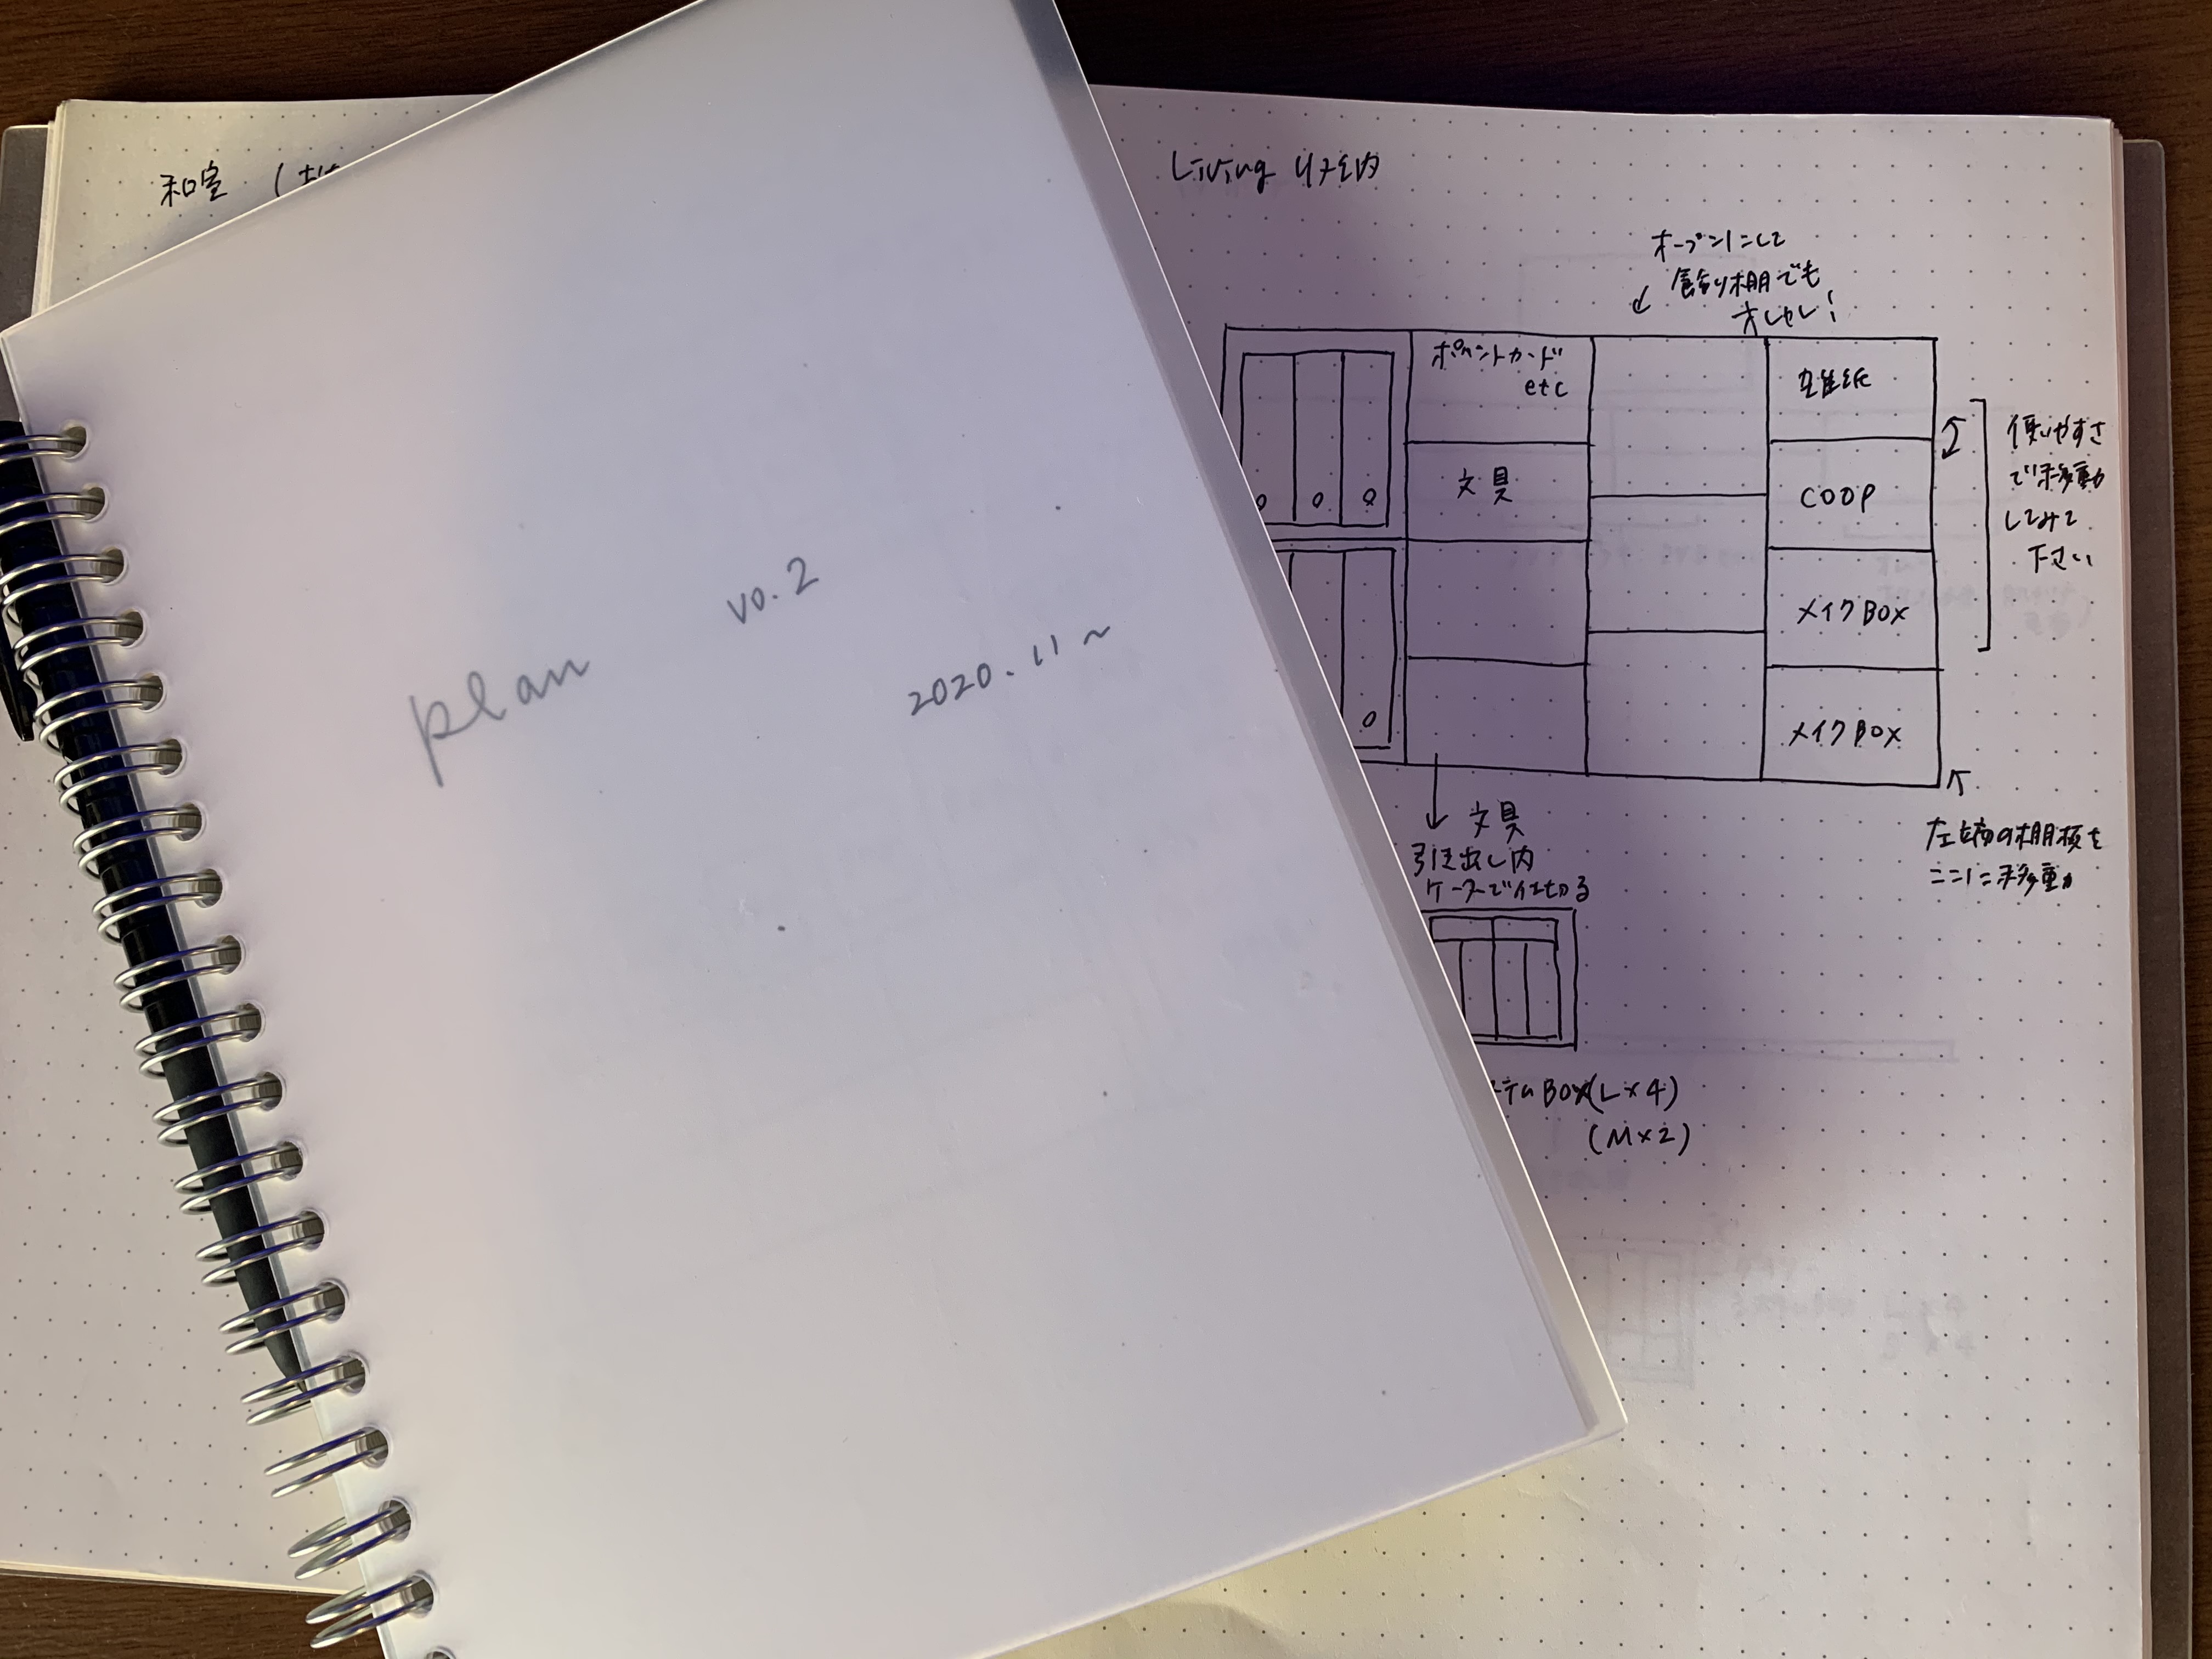 和室
Living 収納
オープンにして
飾り棚でも
オシャレ!
ポイントカード
etc
文具
雑紙
COOP
メイクBOX
メイクBOX
使いやすさ
で移動
してみて
下さい
左端の棚板を
ここに移動
文具
引き出し内
ケースで仕切る
テムBOX(L×4)
(M×2)
vo.2
plan
2020.11~